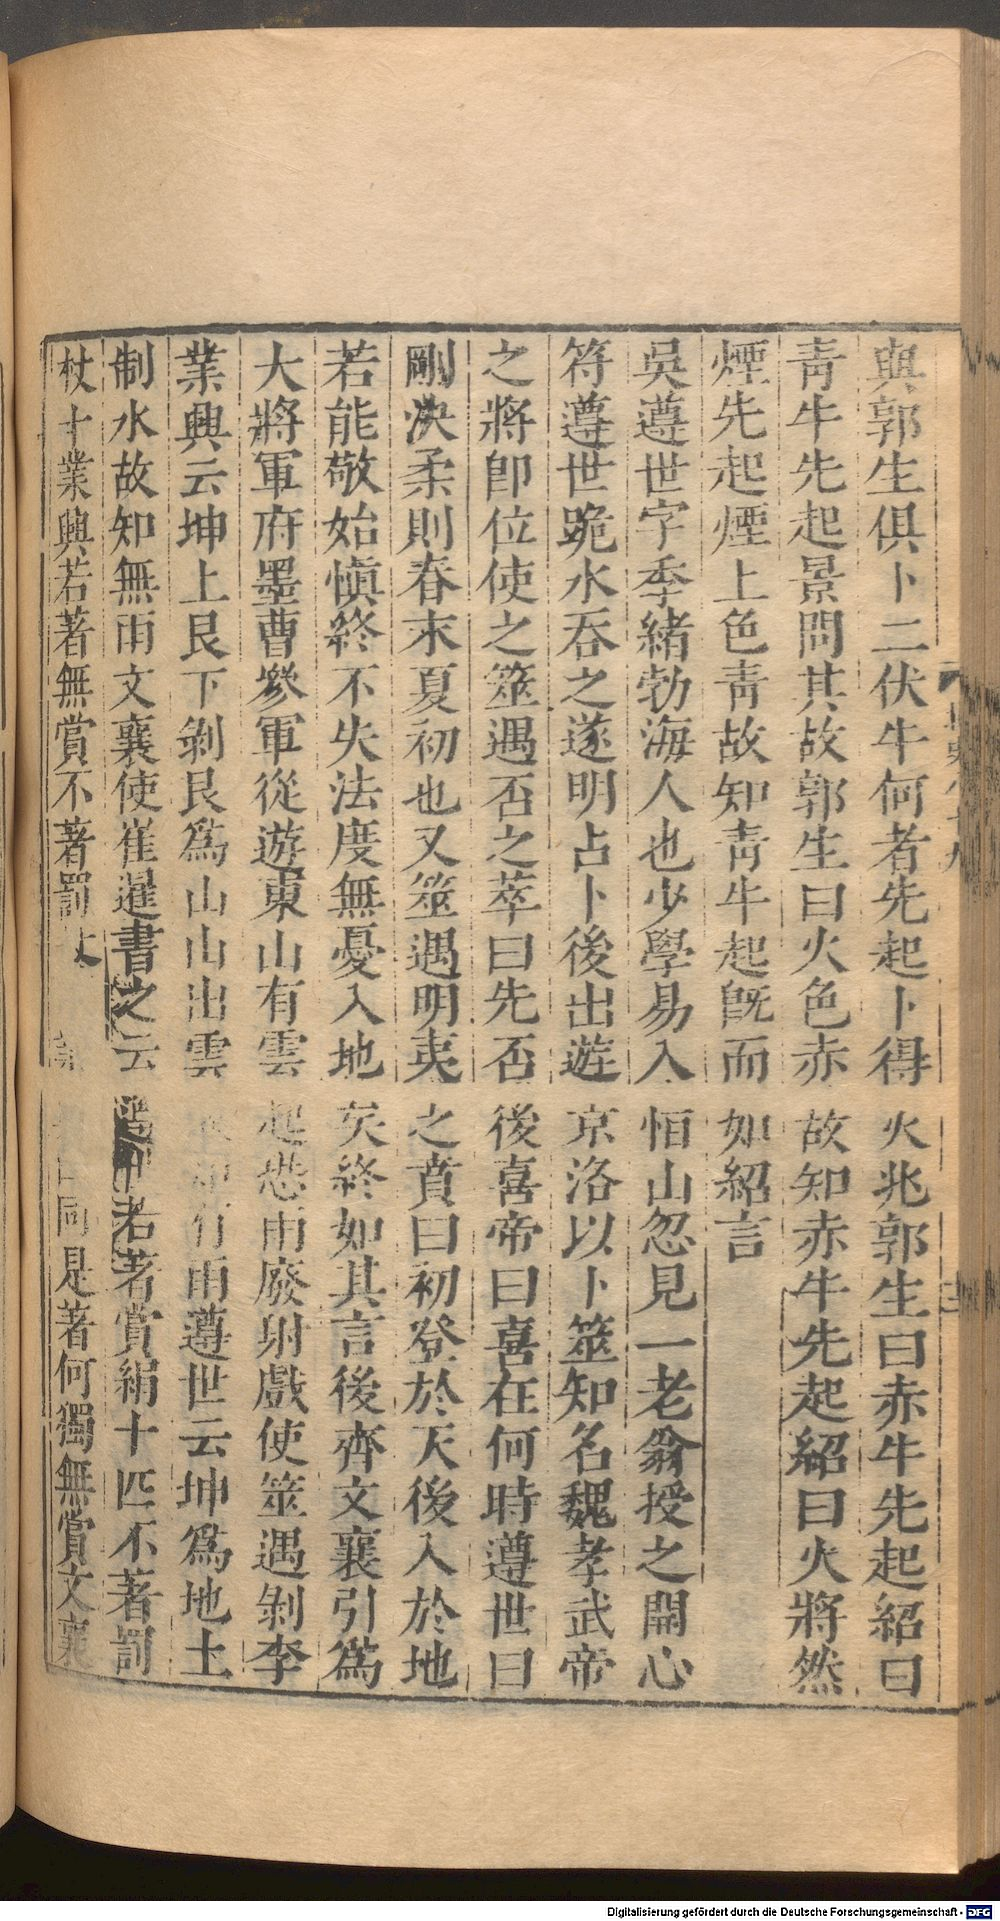 與郭生俱卜二伏牛何者先起卜得火兆郭生曰赤牛先起紹曰
靑牛先起景問其故郭生曰火色赤故知赤牛先起紹曰火將然
煙先起煙上色靑故知靑牛起旣而如紹言
吳遵世字季緒勃海人也少學易入恒山忽見一老翁授之開心
符遵世跪水吞之遂明占卜後出遊京洛以卜筮知名魏孝武帝
之將卽位使之筮遇否之萃曰先否後喜帝曰喜在何時遵世曰
剛決柔則春末夏初也又筮遇明夷之賁曰初登於天後入於地
若能敬始愼終不失法度無憂入地矣終如其言後齊文襄引爲
大將軍府墨曹參軍從遊東山有雲起恐雨廢射戲使筮遇剝李
業興云坤上艮下剝艮爲山山出雲故知有雨遵世云坤爲地土
制水故知無雨文襄使崔暹書之云遵世若著賞絹十匹不著罰
杖十業興若著無賞不著罰杖業興曰同是著何獨無賞文襄
Digitalisierung gefördert durch die Deutsche Forschungsgemeinschaft - DFG